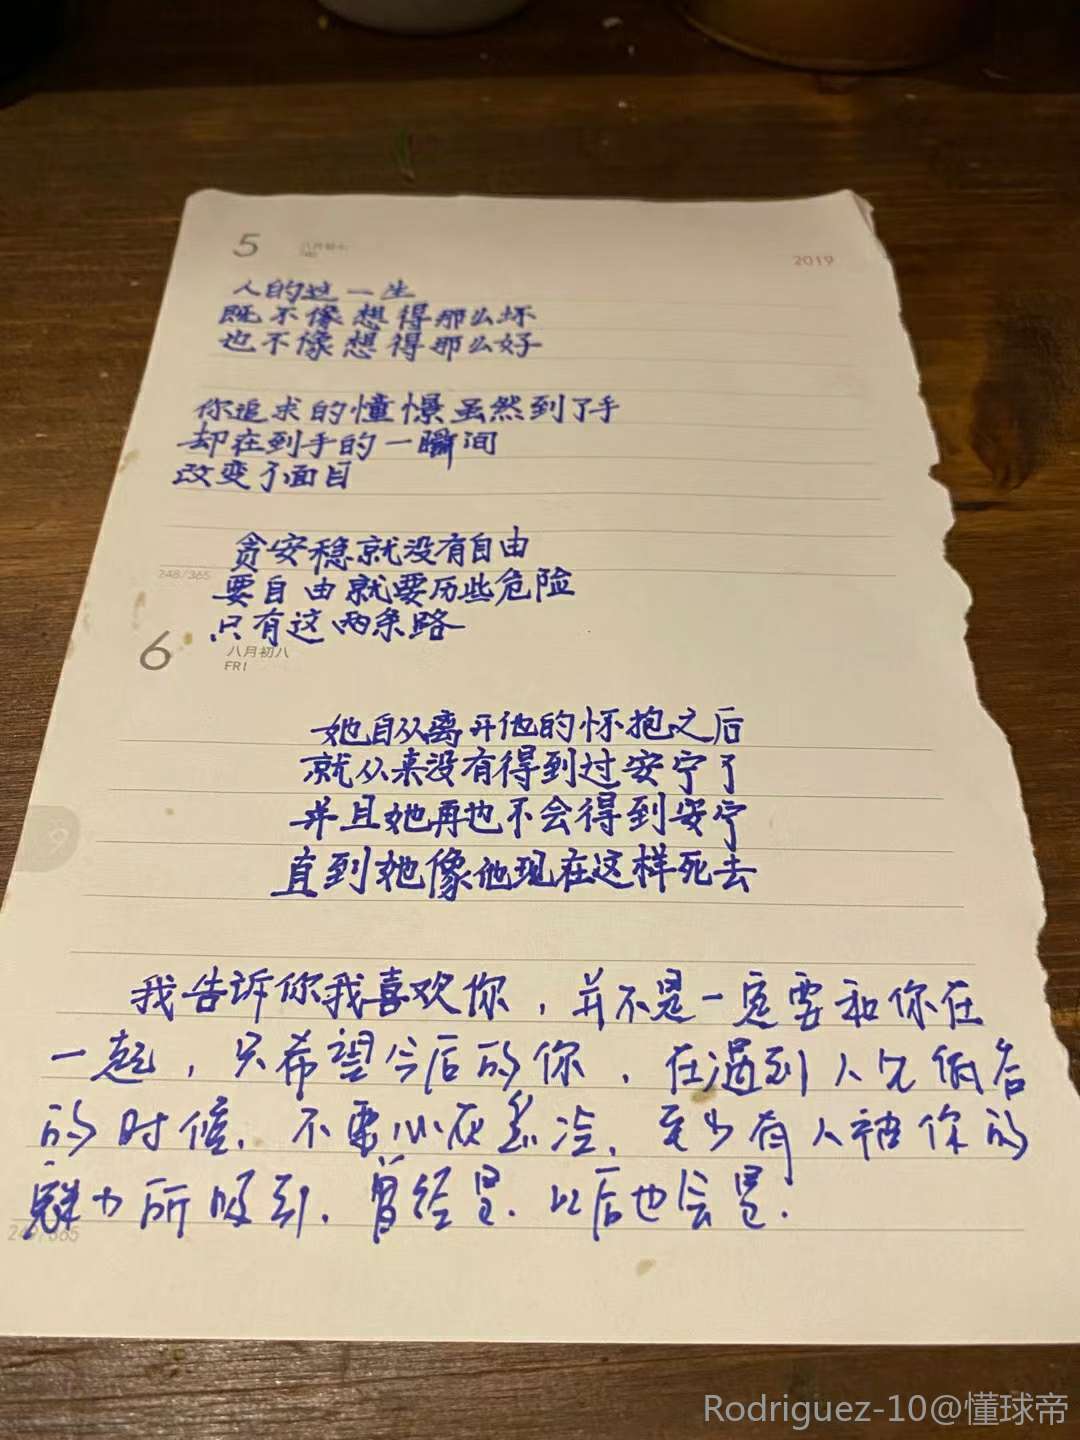 5
八月初七
2019
人的这一生
既不像想得那么坏
也不像想得那么好
你追求的憧憬虽然到了手
却在到手的一瞬间
改变了面目
贪安稳就没有自由
248/365
要自由就要历些危险
只有这两条路
6
八月初八
FRI
她自从离开他的怀抱之后
就从来没有得到过安宁了
并且她再也不会得到安宁
直到她像他现在这样死去
9
我告诉你我喜欢你，并不是一定要和你在
一起，只希望今后的你，在遇到人兄低名
的时候，不要心灰意冷，至少有人被你的
魅力所吸引，曾经是，以后也会是.
249/365
Rodriguez-10@懂球帝